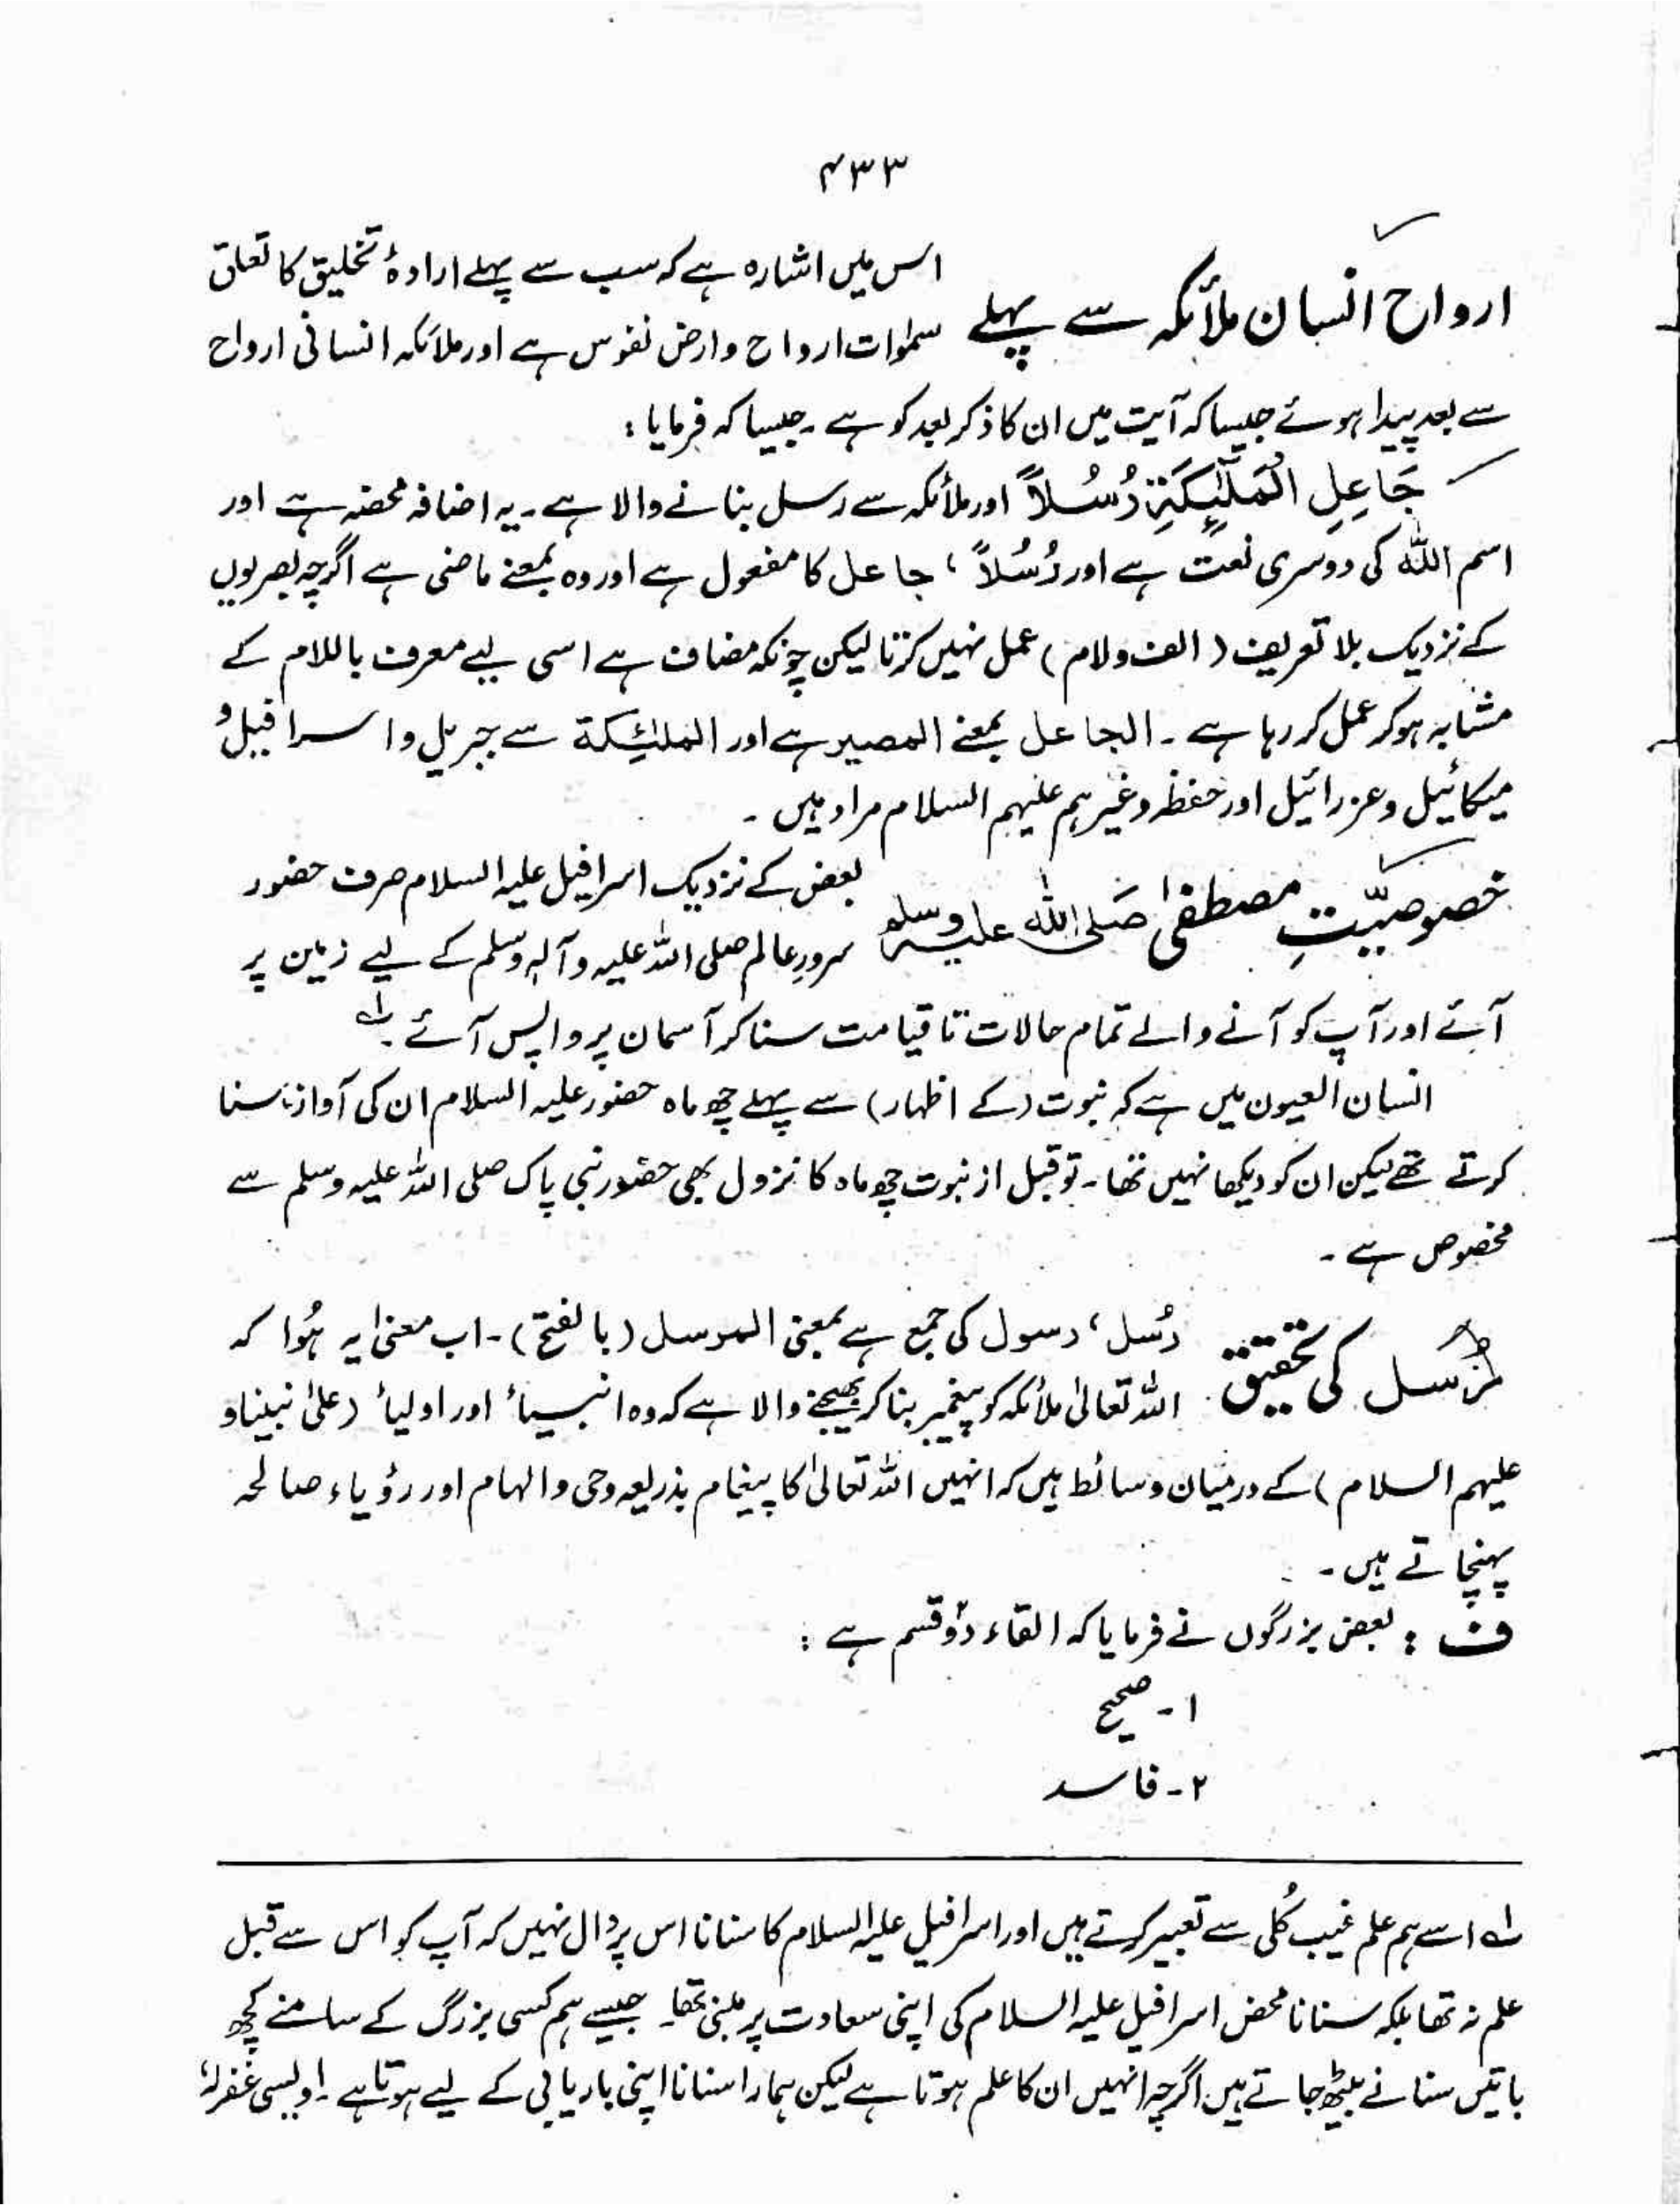 ۴۳۳
ارواح انسان ملائکہ سے پہلے
اس میں اشارہ ہے کہ سب سے پہلے ارادۂ تخلیق کا تعلق
سمٰوات ارواح وارض نفوس ہے اور ملائکہ انسانی ارواح
سے بعد پیدا ہوئے جیسا کہ آیت میں ان کا ذکر بعد کو ہے ۔ جیسا کہ فرمایا :
جَاعِلِ الْمَلٰٓئِکَۃِ رُسُلاً اور ملائکہ سے رسل بنانے والا ہے ۔ یہ اضافہ محضہ ہے اور
اسم اللّٰہ کی دوسری نعت ہے اور رُسُلاً ، جاعل کا مفعول ہے اور وہ بمعنے ماضی ہے اگرچہ بصریوں
کے نزدیک بلا تعریف ( الف ولام ) عمل نہیں کرتا لیکن چونکہ مضاف ہے اسی لیے معرف باللام کے
مشابہ ہو کر عمل کر رہا ہے ۔ الجاعل بمعنے المصیر ہے اور الملٰئکۃ سے جبریل و اسرافیل و
میکائیل و عزرائیل اور حفظہ وغیرہم علیہم السلام مراد ہیں ۔
خصوصیّتِ مصطفیٰ صَلی اللّٰہ علیہ وسلم
بعض کے نزدیک اسرافیل علیہ السلام صرف حضور
سرورِ عالم صلی اللہ علیہ وآلہ وسلم کے لیے زمین پر
آئے اور آپ کو آنے والے تمام حالات تا قیامت سنا کر آسمان پر واپس آئے ۔ لہ
انسان العیون میں ہے کہ نبوت (کے اظہار) سے پہلے چھ ماہ حضور علیہ السلام ان کی آواز سنا
کرتے تھے لیکن ان کو دیکھا نہیں تھا ۔ تو قبل از نبوت چھ ماہ کا نزول بھی حضور نبی پاک صلی اللہ علیہ وسلم سے
مخصوص ہے ۔
رُسل کی تحقیق
رُسل ، رسول کی جمع ہے بمعنی المرسل (بالفتح) ۔ اب معنیٰ یہ ہُوا کہ
اللہ تعالیٰ ملائکہ کو پیغمبر بنا کر بھیجنے والا ہے کہ وہ انبیاء اور اولیاء (علیٰ نبینا و
علیہم السلام ) کے درمیان وسائط ہیں کہ انہیں اللہ تعالیٰ کا پیغام بذریعہ وحی والہام اور رؤیاء صالحہ
پہنچاتے ہیں ۔
ف : بعض بزرگوں نے فرمایا کہ القاء دو قسم ہے :
۱ ۔ صحیح
۲ ۔ فاسد
لہ اسے ہم علم غیب کُلی سے تعبیر کرتے ہیں اور اسرافیل علیہ السلام کا سنانا اس پر دال نہیں کہ آپ کو اس سے قبل
علم نہ تھا بلکہ سنانا محض اسرافیل علیہ السلام کی اپنی سعادت پر مبنی تھا ۔ جیسے ہم کسی بزرگ کے سامنے کچھ
باتیں سنانے بیٹھ جاتے ہیں اگرچہ انہیں ان کا علم ہوتا ہے لیکن ہمارا سنانا اپنی باریابی کے لیے ہوتا ہے ۔ اویسی غفرلہٗ